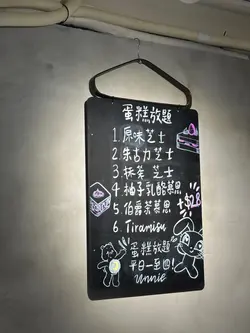 蛋糕放題
1. 原味芝士
2. 朱古力芝士
3. 抹茶芝士
4. 柚子乳酪慕思
5. 伯爵茶慕思
+$28
6. Tiramisu
蛋糕放題
平日一至四!
unnie